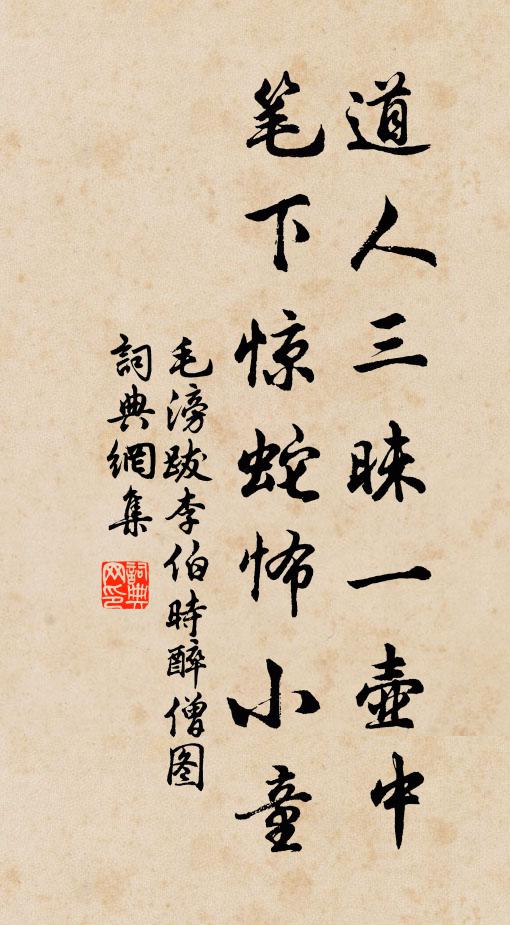 道人三昧一壺中
笔下惊蛇怖小童
毛滂跋李伯時醉僧图
詞典網集
詞典
网印